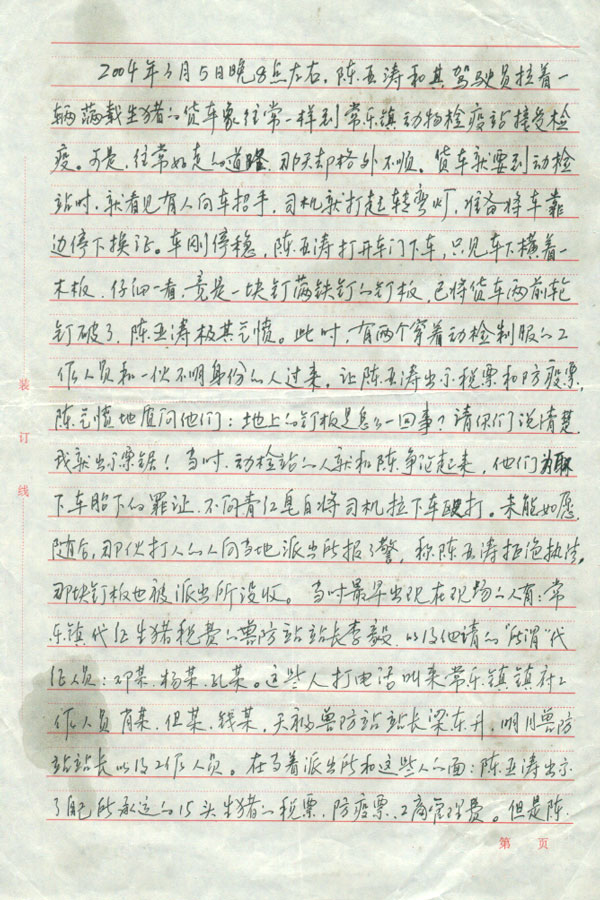 2004年3月5日晚8点左右,陈亚涛和其驾驶员拉着一
辆满载生猪的货车象往常一样到常乐镇动物检疫站接受检
疫。可是,往常好走的道路,那天却格外不顺。货车就要到动检
站时,就看见有人向车招手,司机就打起转弯灯,准备将车靠
边停下换证。车刚停稳,陈亚涛打开车门下车,只见车下横着一
木板,仔细一看,竟是一块钉满铁钉的钉板,已将货车两前轮
钉破了,陈亚涛极其气愤。此时,有两个穿着动检制服的工
作人员和一伙不明身份的人过来,让陈亚涛出示税票和防疫票,
陈气愤地质问他们:地上的钉板是怎么一回事?请你们说清楚
我就出示票据!当时,动检站的人就和陈争论起来,他们为取
下车胎下的罪证,不问青红皂白将司机拉下车殴打。未能如愿,
随后,那伙打人的人向当地派出所报了警,称陈亚涛拒绝执法,
那块钉板也被派出所没收。当时最早出现在现场的人有:常
乐镇代征生猪税费的兽防站站长李毅,以及他请的“所谓”代
征人员:邓某、杨某、孔某。这些人打电话叫来常乐镇镇府工
作人员肖某、但某、钱某,天和兽防站站长梁东升,明川兽防
站站长以及工作人员。在当着派出所和这些人的面:陈亚涛出示
了自己所承运的15头生猪的税票、防疫票、工商管理费。但是陈
装
订
线
第 页